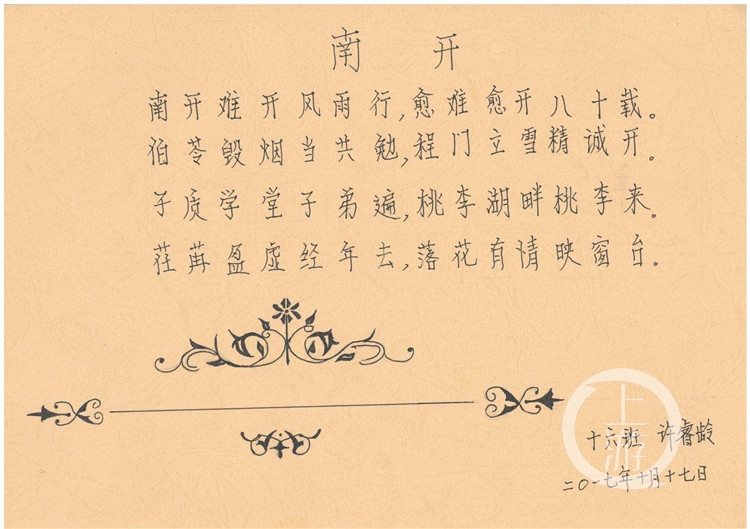 南 开
南开难开风雨行，愈难愈开八十载。
伯苓毁烟当共勉，程门立雪精诚开。
子质学堂子弟遍，桃李湖畔桃李来。
荏苒盈虚经年去，落花有情映窗台。
上游
十六班 许睿龄
二〇一七年十月十七日